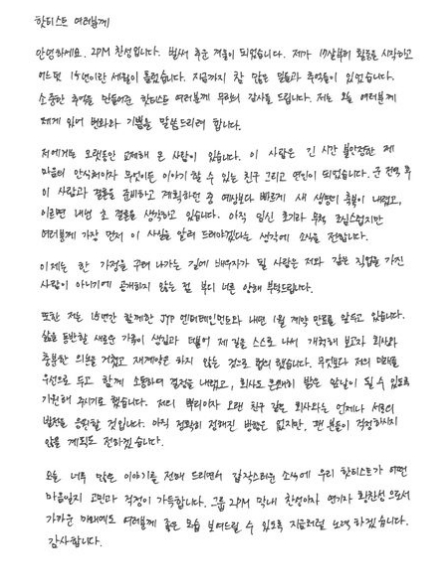 핫티스트 여러분께
안녕하세요. 2PM 찬성입니다. 벌써 추운 겨울이 되었습니다. 제가 17살부터 활동을 시작하고
어느덧 15년이란 세월이 흘렀습니다. 지금까지 참 많은 일들과 추억들이 있었습니다.
소중한 추억을 만들어준 핫티스트 여러분께 무한히 감사를 드립니다. 저는 오늘 여러분께
제게 있어 변화와 기쁨을 말씀드리려 합니다.
저에게는 오랫동안 교제해 온 사람이 있습니다. 이 사람은 긴 시간 불안정한 제
마음의 안식처이자 무엇이든 이야기할 수 있는 친구 그리고 연인이 되었습니다. 군 전역 후
이 사람과 결혼을 준비하고 계획하던 중 예상보다 빠르게 새 생명의 축복이 내렸고,
이르면 내년 초 결혼을 생각하고 있습니다. 아직 임신 초기라 무척 조심스럽지만
여러분께 가장 먼저 이 사실을 알려 드려야겠다는 생각에 소식을 전합니다.
이제는 한 가정을 꾸려 나가는 길에 배우자가 될 사람은 저와 같은 직업을 가진
사람이 아니기에 공개하지 않는 점 부디 너른 양해 부탁드립니다.
또한 저는 15년간 함께한 JYP 엔터테인먼트와 내년 1월 계약 만료를 앞두고 있습니다.
삶을 동반할 새로운 가족이 생김과 더불어 제 길을 스스로 나서 개척해 보고자 회사와
충분한 의논을 거쳤고 재계약은 하지 않는 것으로 협의 했습니다. 무엇보다 저의 미래를
우선으로 두고 함께 소통하며 결정을 내렸고, 회사도 온전히 밝은 앞날이 될 수 있도록
기원해 주시기로 했습니다. 저의 뿌리이자 오랜 친구 같은 회사와는 언제나 서로의
발전을 응원할 것입니다. 아직 정확히 정해진 방향은 없지만, 팬 분들이 걱정하시지
않을 계획도 전하겠습니다.
오늘 너무 많은 이야기를 전해 드리면서 갑작스러운 소식에 우리 핫티스트가 어떤
마음일지 고민과 걱정이 가득합니다. 그룹 2PM 막내 찬성이자 연기자 황찬성으로서
가까운 미래에도 여러분께 좋은 모습 보여드릴 수 있도록 지금처럼 노력 하겠습니다.
감사합니다.